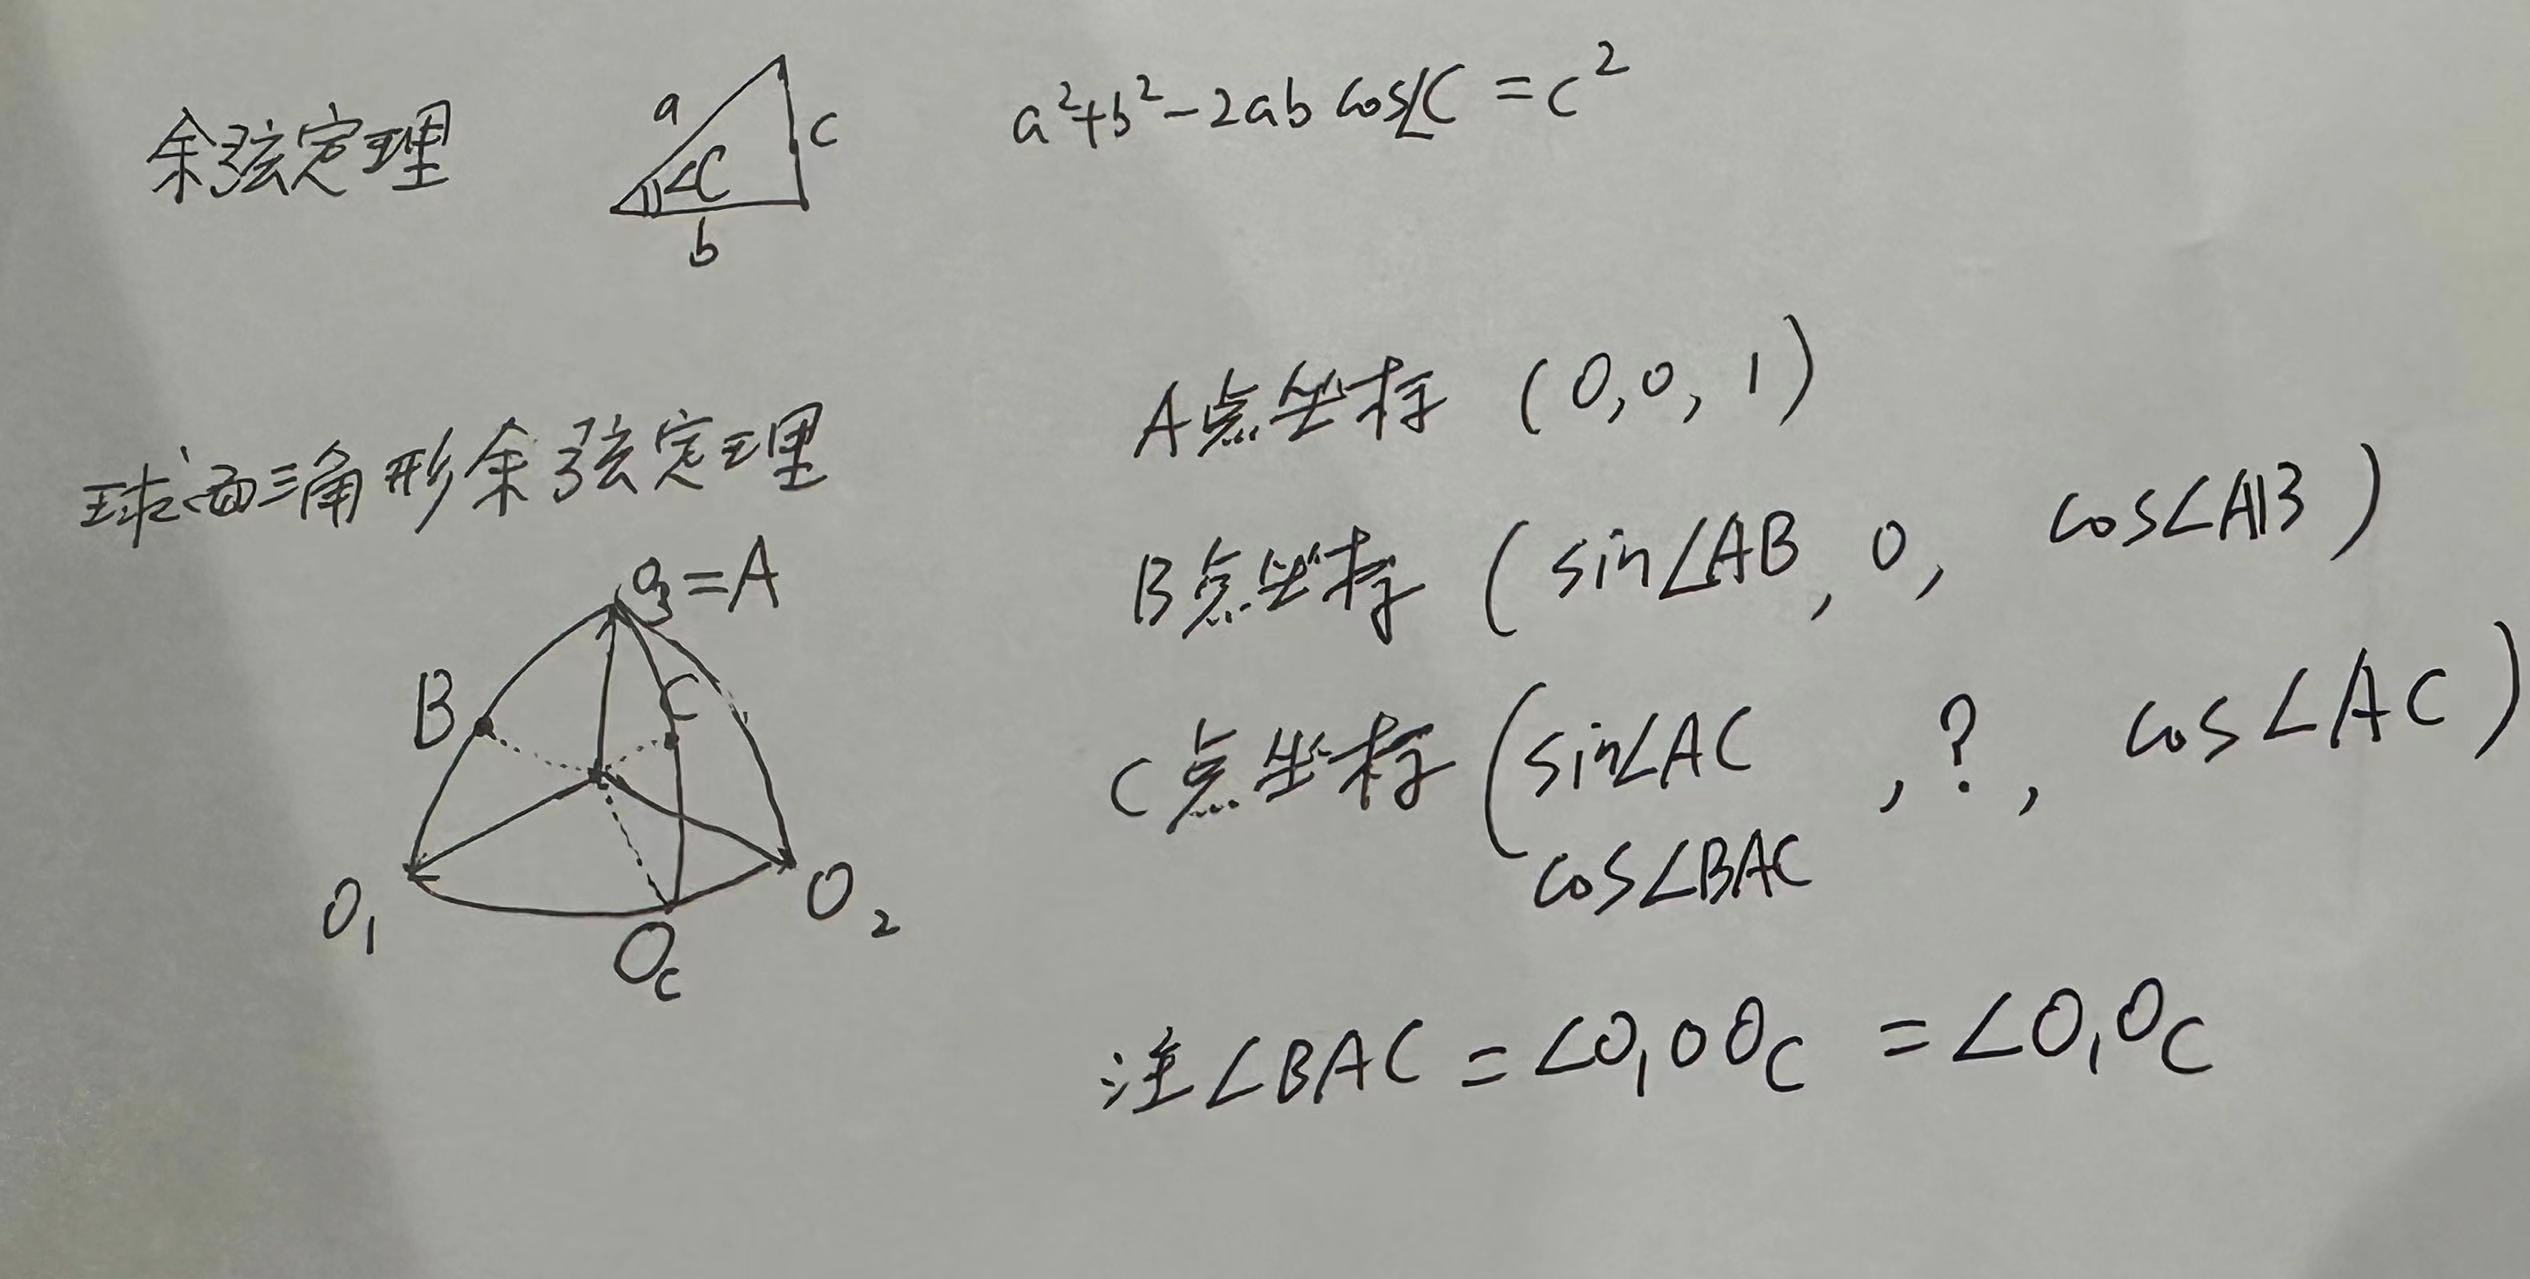 余弦定理
a
c
∠C
b
a²+b²-2ab cos∠C = c²
球面三角形余弦定理
O₃=A
B
C
O₁
O₂
O_C
A点坐标 (0,0,1)
B点坐标 (sin∠AB, 0, cos∠AB)
C点坐标 (sin∠AC , ?, cos∠AC)
cos∠BAC
注∠BAC = ∠O₁OO_C = ∠O₁O_C